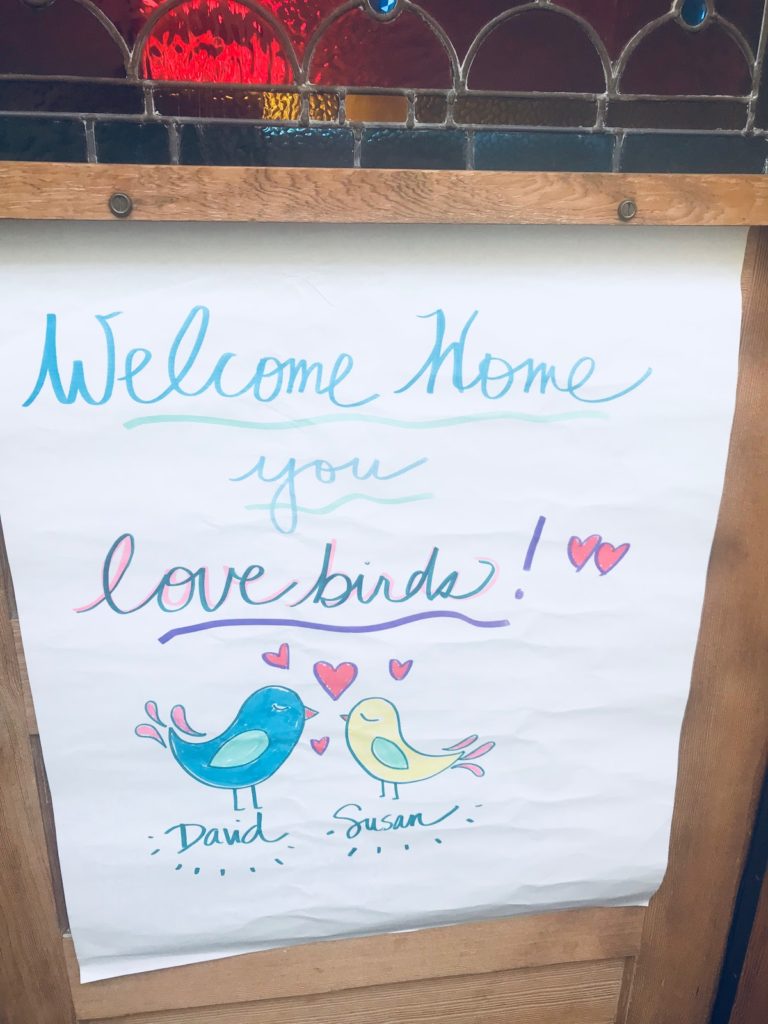 Welcome Home
you
love birds!
David Susan